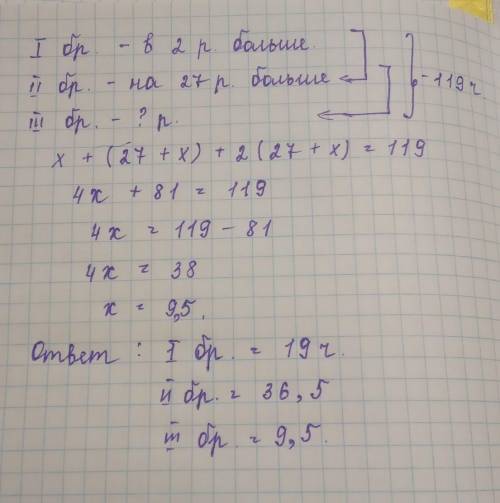 I бр. - в 2 р. больше.
II бр. - на 27 р. больше
- 119 ч
III бр. - ? р.
x + (27 + x) + 2 (27 + x) = 119
4x + 81 = 119
4x = 119 - 81
4x = 38
x = 9,5.
Ответ : I бр. = 19 ч.
II бр. = 36,5
III бр. = 9,5.